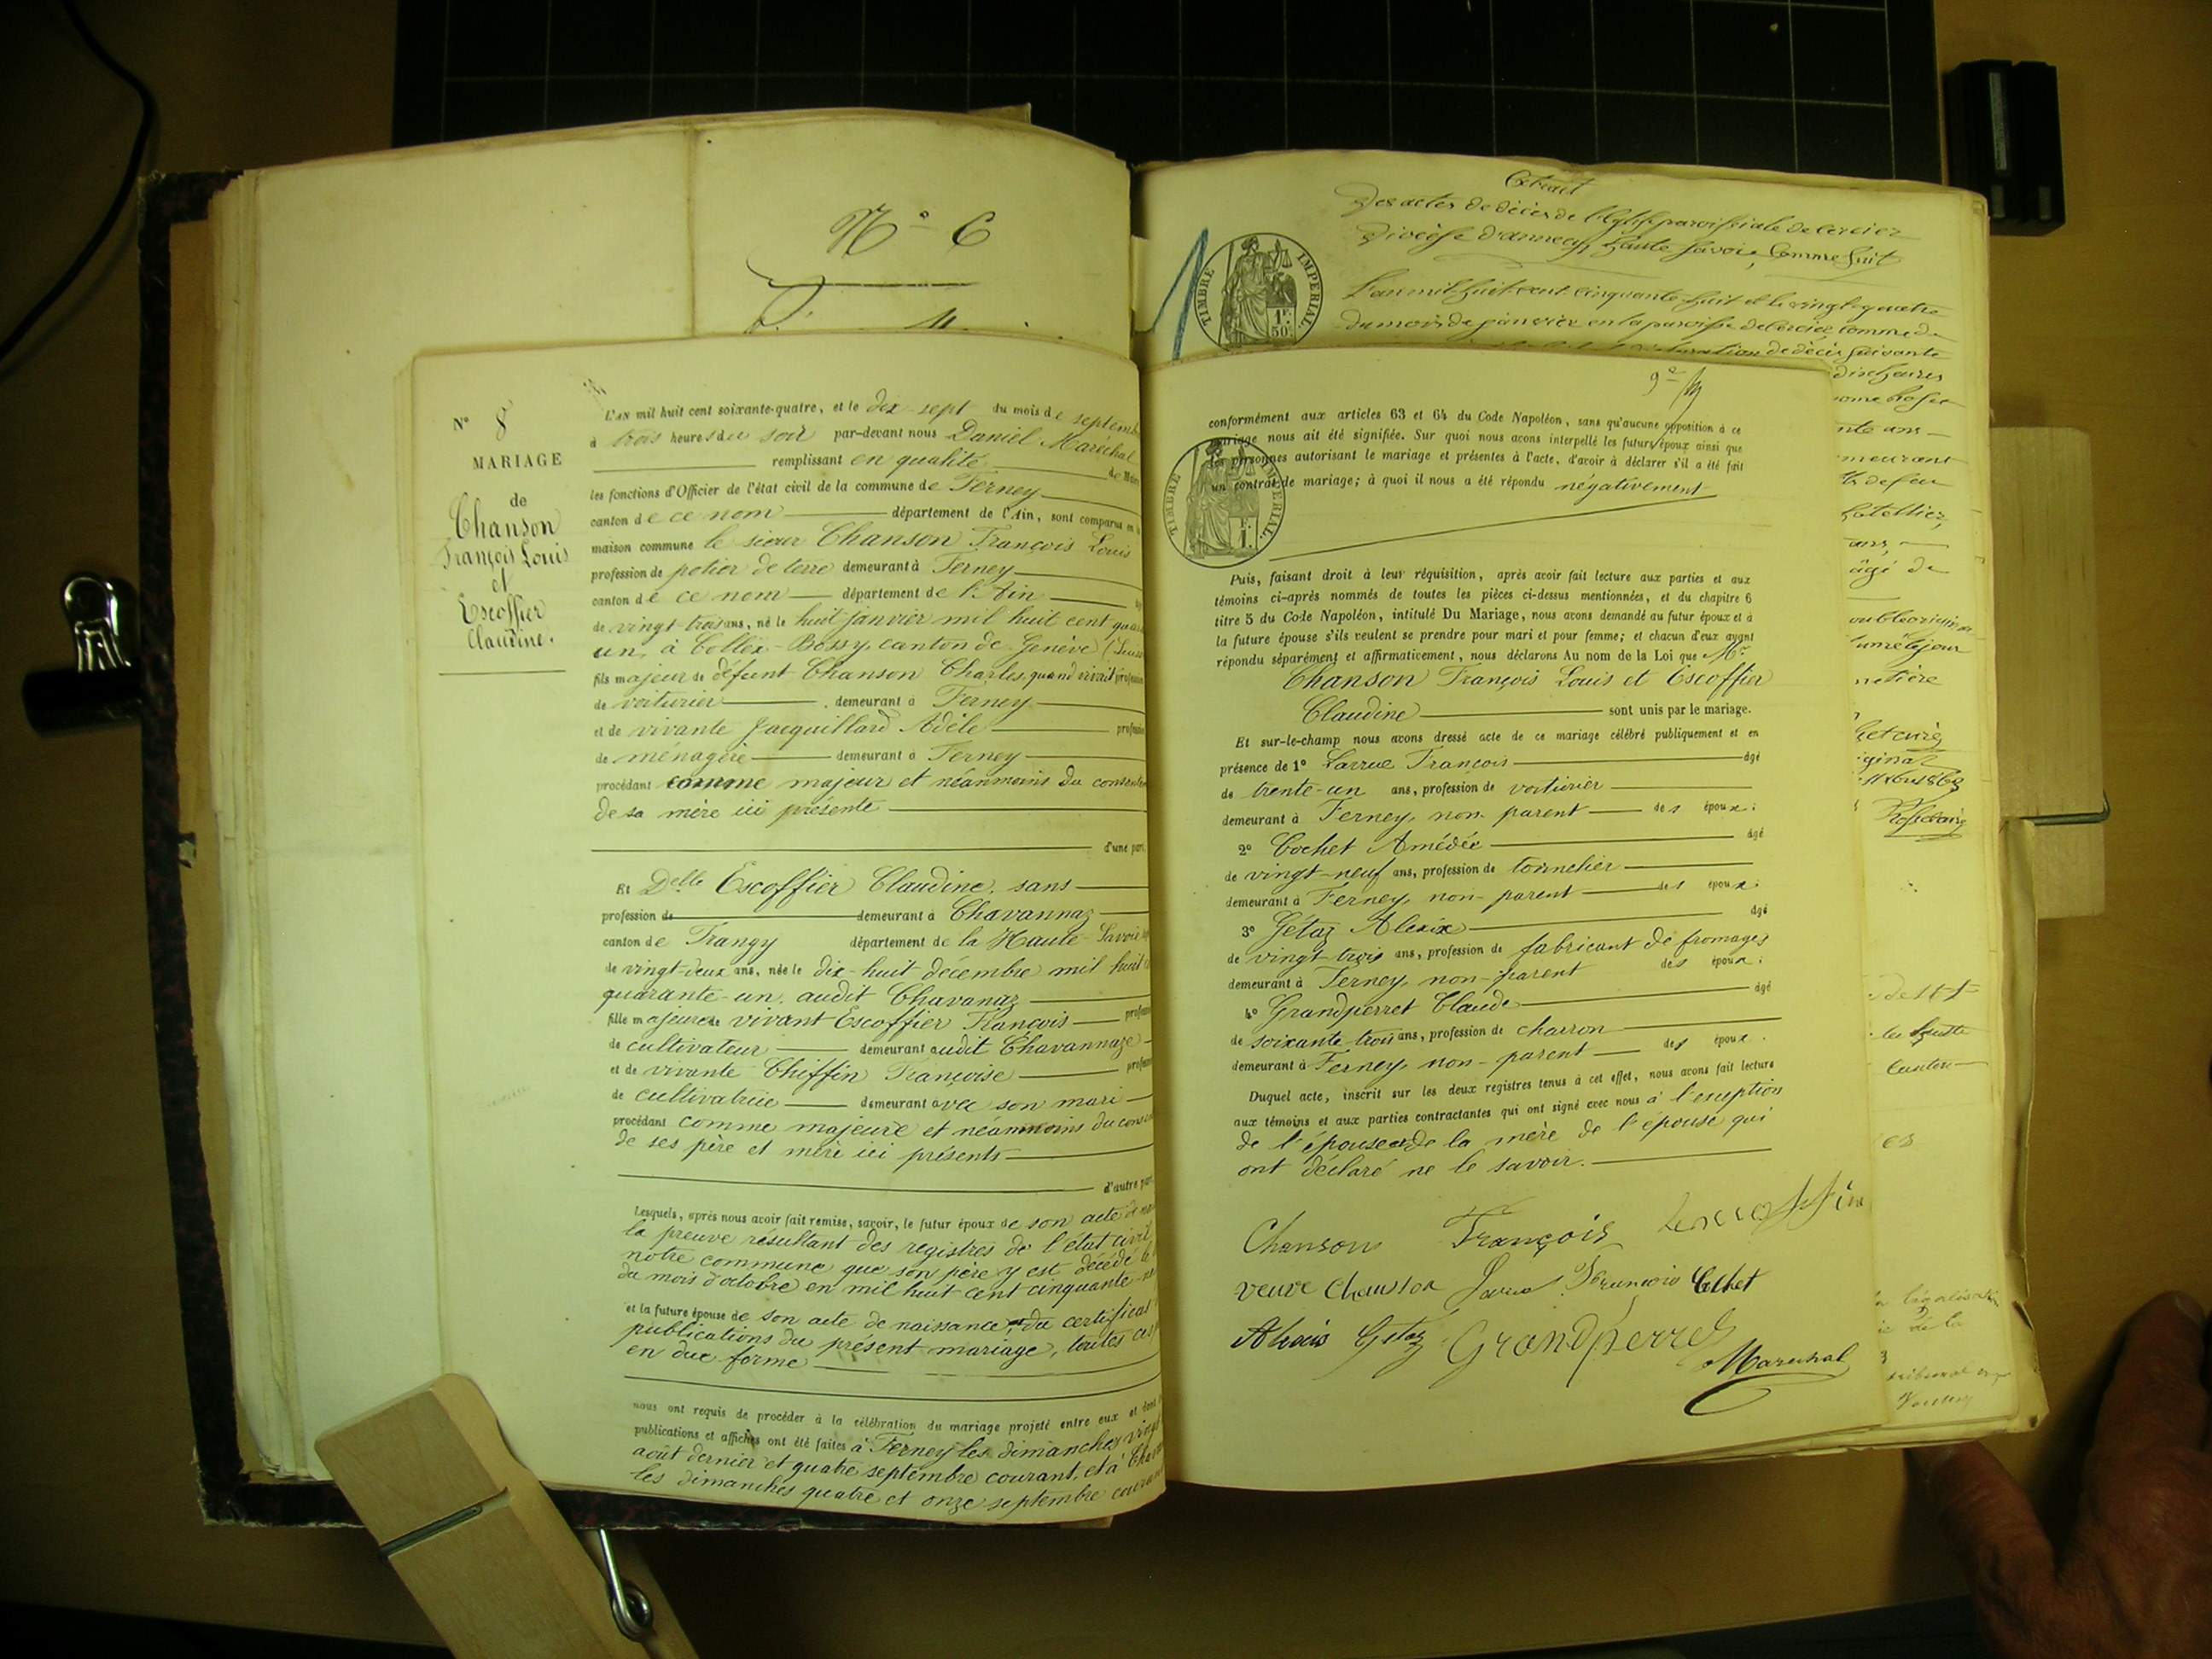 N° 6
N° 8
MARIAGE
de
Chanson
François Louis
et
Escoffier
Claudine.
L'AN mil huit cent soixante-quatre, et le dix-sept du mois de septemb
à trois heures du soir par-devant nous Daniel Maréchal
remplissant en qualité de Maire
les fonctions d'Officier de l'état civil de la commune de Ferney
canton de ce nom département de l'Ain, sont comparus en la
maison commune le sieur Chanson François Louis
profession de potier de terre demeurant à Ferney
canton de ce nom département de l'Ain
de vingt-trois ans, né le huit janvier mil huit cent quara
un, à Collex-Bossy, canton de Genève (Suis
fils majeur de défunt Chanson Charles, quand vivait profession
de voiturier demeurant à Ferney
et de vivante Jacquillard Adèle profession
de ménagère demeurant à Ferney
procédant comme majeur et néanmoins du consente
de sa mère ici présente
d'une part,
Et Delle Escoffier Claudine, sans
profession de demeurant à Chavannaz
canton de Frangy département de la Haute-Savoie
de vingt-deux ans, née le dix-huit décembre mil huit c
quarante-un, audit Chavanaz
fille majeure de vivant Escoffier François profession
de cultivateur demeurant audit Chavannaze
et de vivante Chiffin Françoise profession
de cultivatrice demeurant avec son mari
procédant comme majeure et néanmoins du conse
de ses père et mère ici présents
d'autre part
Lesquels, après nous avoir fait remise, savoir, le futur époux de son acte de nais
la preuve résultant des registres de l'état civil
notre commune que son père y est décédé le
du mois d'octobre en mil huit cent cinquante
et la future épouse de son acte de naissance, du certificat
publications du présent mariage, toutes ces p
en due forme
nous ont requis de procéder à la célébration du mariage projeté entre eux et dont
publications et affiches ont été faites à Ferney les dimanches vingt
août dernier et quatre septembre courant, et à Chava
les dimanches quatre et onze septembre couran
Extrait
Des actes de décès de l'Eglise paroissiale de Cercier
Diocèse d'annecy, haute Savoie, Comme suit
L'an mil huit cent cinquante huit et le vingt quatre
du mois de janvier en la paroisse de Cercier commune de
déclaration de décès suivante
TIMBRE IMPERIAL
1F. 50c.
9e
conformément aux articles 63 et 64 du Code Napoléon, sans qu'aucune opposition à ce
mariage nous ait été signifiée. Sur quoi nous avons interpellé les futurs époux ainsi que
les personnes autorisant le mariage et présentes à l'acte, d'avoir à déclarer s'il a été fait
un contrat de mariage; à quoi il nous a été répondu négativement
TIMBRE IMPERIAL
F. 1.
Puis, faisant droit à leur réquisition, après avoir fait lecture aux parties et aux
témoins ci-après nommés de toutes les pièces ci-dessus mentionnées, et du chapitre 6
titre 5 du Code Napoléon, intitulé Du Mariage, nous avons demandé au futur époux et à
la future épouse s'ils veulent se prendre pour mari et pour femme; et chacun d'eux ayant
répondu séparément et affirmativement, nous déclarons Au nom de la Loi que Mr
Chanson François Louis et Escoffier
Claudine sont unis par le mariage.
Et sur-le-champ nous avons dressé acte de ce mariage célébré publiquement et en
présence de 1° Larrue François âgé
de trente-un ans, profession de voiturier
demeurant à Ferney, non parent des époux;
2° Cochet Amédée âgé
de vingt-neuf ans, profession de tonnelier
demeurant à Ferney, non-parent des époux;
3° Gétaz Alexix âgé
de vingt-trois ans, profession de fabricant de fromages
demeurant à Ferney, non-parent des époux;
4° Grandperret Claude âgé
de soixante-trois ans, profession de charron
demeurant à Ferney, non-parent des époux.
Duquel acte, inscrit sur les deux registres tenus à cet effet, nous avons fait lecture
aux témoins et aux parties contractantes qui ont signé avec nous à l'exeption
de l'épouse et de la mère de l'épouse qui
ont déclaré ne le savoir.
Chanson François
veuve Chanson François Cochet
Alexis Gétaz Grandperret
Marechal